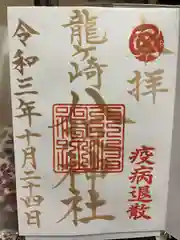 奉拝
龍ケ崎八坂神社
疫病退散
令和三年十月二十四日